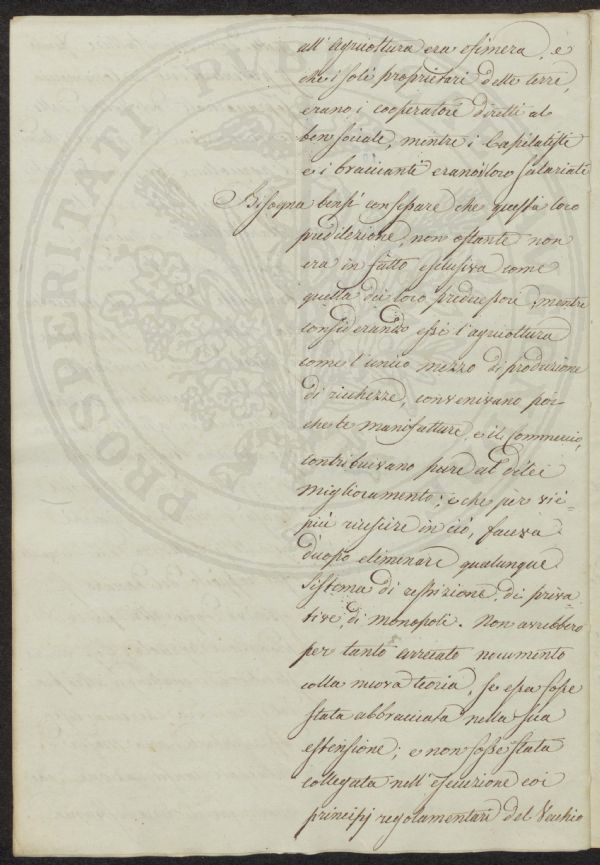 all'agricoltura era efimera, e
che i soli proprietarj delle terre,
erano i cooperatori diretti al
ben sociale, mentre i Capitalisti
e i braccianti erano i loro salariati
Bisogna bensì confessare che questa loro
predilezione, non ostante non
era in fatto esclusiva come
quella dei loro predecessori, mentre
considerando essi l'agricoltura
come l'unico mezzo di produzione
di ricchezze, convenivano poi
che le manifatture, e il Commercio,
contribuivano pure al di lei
miglioramento; e che per vie=
più riuscire in ciò, faceva
d'uopo eliminare qualunque
sistema di restrizione, di priva=
tive, di monopoli. Non avrebbero
per tanto arrecato nocumento
colla nuova teoria, se essa fosse
stata abbracciata nella sua
estensione; e non fosse stata
collegata nell'esecuzione coi
principj regolamentari del Vecchio
PROSPERITATI PUBLICAE